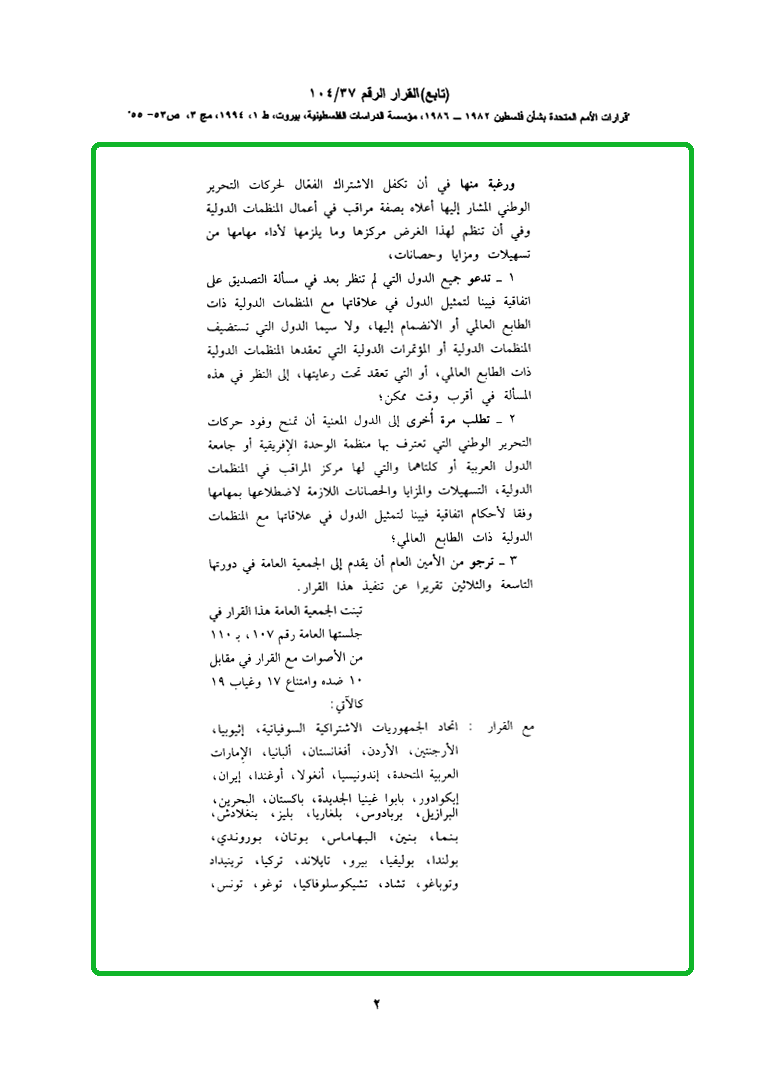 (تابع)القرار الرقم ١٠٤/٣٧
قرارات الأمم المتحدة بشأن فلسطين ١٩٨٢ ــ ١٩٨٦، مؤسسة الدراسات الفلسطينية، بيروت، ط ١، ١٩٩٤، مج ٣، ص٥٣- ٥٥.
ورغبة منها في أن تكفل الاشتراك الفعّال لحركات التحرير
الوطني المشار إليها أعلاه بصفة مراقب في أعمال المنظمات الدولية
وفي أن تنظم لهذا الغرض مركزها وما يلزمها لأداء مهامها من
تسهيلات ومزايا وحصانات،
١ ـ تدعو جميع الدول التي لم تنظر بعد في مسألة التصديق على
اتفاقية فيينا لتمثيل الدول في علاقاتها مع المنظمات الدولية ذات
الطابع العالمي أو الانضمام إليها، ولا سيما الدول التي تستضيف
المنظمات الدولية أو المؤتمرات الدولية التي تعقدها المنظمات الدولية
ذات الطابع العالمي، أو التي تعقد تحت رعايتها، إلى النظر في هذه
المسألة في أقرب وقت ممكن؛
٢ ـ تطلب مرة أُخرى إلى الدول المعنية أن تمنح وفود حركات
التحرير الوطني التي تعترف بها منظمة الوحدة الإفريقية أو جامعة
الدول العربية أو كلتاهما والتي لها مركز المراقب في المنظمات
الدولية، التسهيلات والمزايا والحصانات اللازمة لاضطلاعها بمهامها
وفقا لأحكام اتفاقية فيينا لتمثيل الدول في علاقاتها مع المنظمات
الدولية ذات الطابع العالمي؛
٣ ـ ترجو من الأمين العام أن يقدم إلى الجمعية العامة في دورتها
التاسعة والثلاثين تقريرا عن تنفيذ هذا القرار.
تبنت الجمعية العامة هذا القرار في
جلستها العامة رقم ١٠٧، بـ ١١٠
من الأصوات مع القرار في مقابل
١٠ ضده وامتناع ١٧ وغياب ١٩
كالآتي:
مع القرار : اتحاد الجمهوريات الاشتراكية السوفياتية، إثيوبيا،
الأرجنتين، الأردن، أفغانستان، ألبانيا، الإمارات
العربية المتحدة، إندونيسيا، أنغولا، أوغندا، إيران،
إيكوادور، بابوا غينيا الجديدة، باكستان، البحرين،
البرازيل، بربادوس، بلغاريا، بليز، بنغلادش،
بنما، بنين، البهاماس، بوتان، بوروندي،
بولندا، بوليفيا، بيرو، تايلاند، تركيا، ترينيداد
وتوباغو، تشاد، تشيكوسلوفاكيا، توغو، تونس،
٢